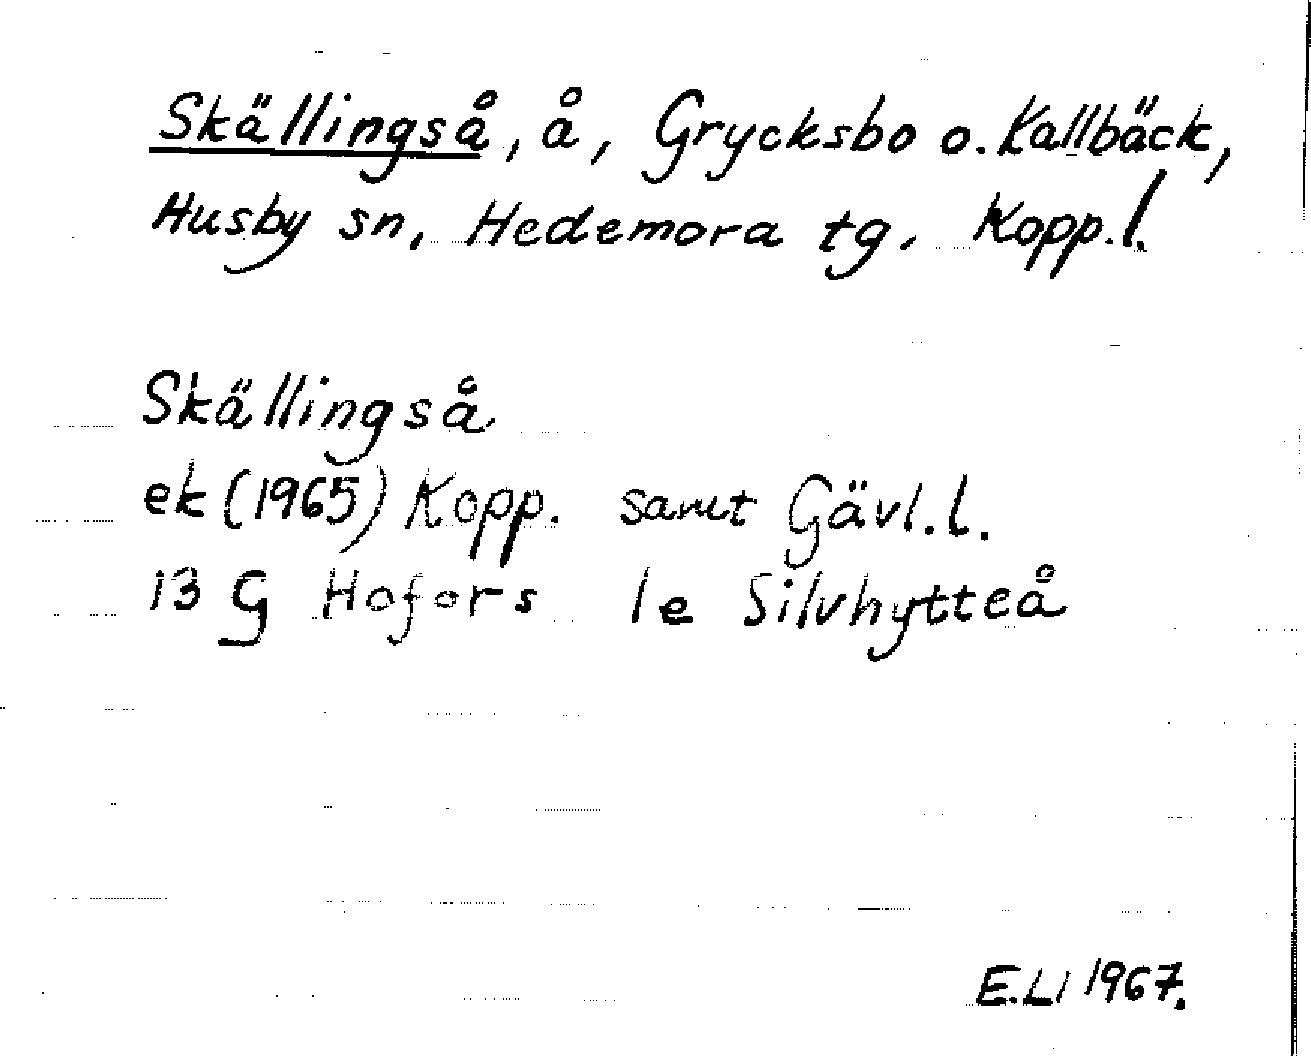 Skällingså, å, Grycksbo o. Kallbäck,
Husby sn, Hedemora tg. Kopp.l.
Skällingså
ek (1965) Kopp. samt Gävl.l.
13 G Hofors 1e Silvhytteå
E.Ll 1967.